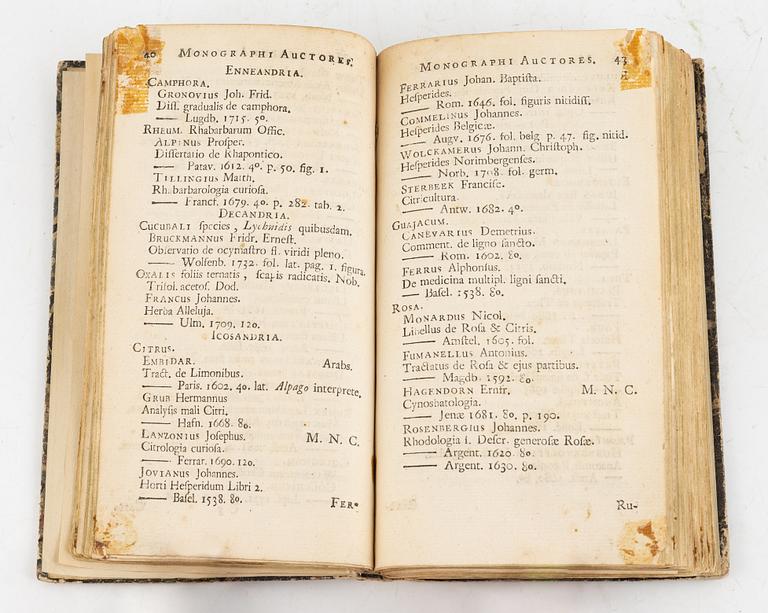 40 MONOGRAPHI AUCTORES.
ENNEANDRIA.
CAMPHORA.
GRONOVIUS Joh. Frid.
Diſſ. gradualis de camphora.
—— Lugdb. 1715. 50.
RHEUM. Rhabarbarum Offic.
ALPINUS Proſper.
Diſſertatio de Rhapontico.
—— Patav. 1612. 40. p. 50. fig. 1.
TILLINGIUS Matth.
Rhabarbarologia curioſa.
—— Francf. 1679. 40. p. 282. tab. 2.
DECANDRIA.
CUCUBALI ſpecies, Lychnidis quibusdam.
BRUCKMANNUS Fridr. Erneſt.
Obſervatio de ocymaſtro fl. viridi pleno.
—— Wolfenb. 1732. fol. lat. pag. 1. figura.
OXALIS foliis ternatis, ſcapis radicatis. Nob.
Trifol. acetoſ. Dod.
FRANCUS Johannes.
Herba Alleluja.
—— Ulm. 1709. 120.
ICOSANDRIA.
CITRUS.
EMBIDAR. Arabs.
Tract. de Limonibus.
—— Paris. 1602. 40. lat. Alpago interprete.
GRUB Hermannus
Analyſis mali Citri.
—— Hafn. 1668. 80.
LANZONIUS Joſephus. M. N. C.
Citrologia curioſa.
—— Ferrar. 1690. 120.
JOVIANUS Johannes.
Horti Heſperidum Libri 2.
—— Baſel. 1538. 80.
FER-
MONOGRAPHI AUCTORES. 43
FERRARIUS Johan. Baptiſta.
Heſperides.
—— Rom. 1646. fol. figuris nitidiſſ.
COMMELINUS Johannes.
Heſperides Belgicæ.
—— Augv. 1676. fol. belg p. 47. fig. nitid.
WOLCKAMERUS Johann. Chriſtoph.
Heſperides Norimbergenſes.
—— Norb. 1708. fol. germ.
STERBEEK Franciſc.
Citricultura.
—— Antw. 1682. 40.
GUAJACUM.
CANEVARIUS Demetrius.
Comment. de ligno ſancto.
—— Rom. 1602. 80.
FERRUS Alphonſus.
De medicina multipl. ligni ſancti.
—— Baſel. 1538. 80.
ROSA.
MONARDUS Nicol.
Libellus de Roſa & Citris.
—— Amſtel. 1605. fol.
FUMANELLUS Antonius.
Tractatus de Roſa & ejus partibus.
—— Magdb. 1592. 80.
HAGENDORN Ernfr. M. N. C.
Cynosbatologia.
—— Jenæ 1681. 80. p. 190.
ROSENBERGIUS Johannes.
Rhodologia ſ. Deſcr. generoſæ Roſæ.
—— Argent. 1620. 80.
—— Argent. 1630. 80.
Ru-